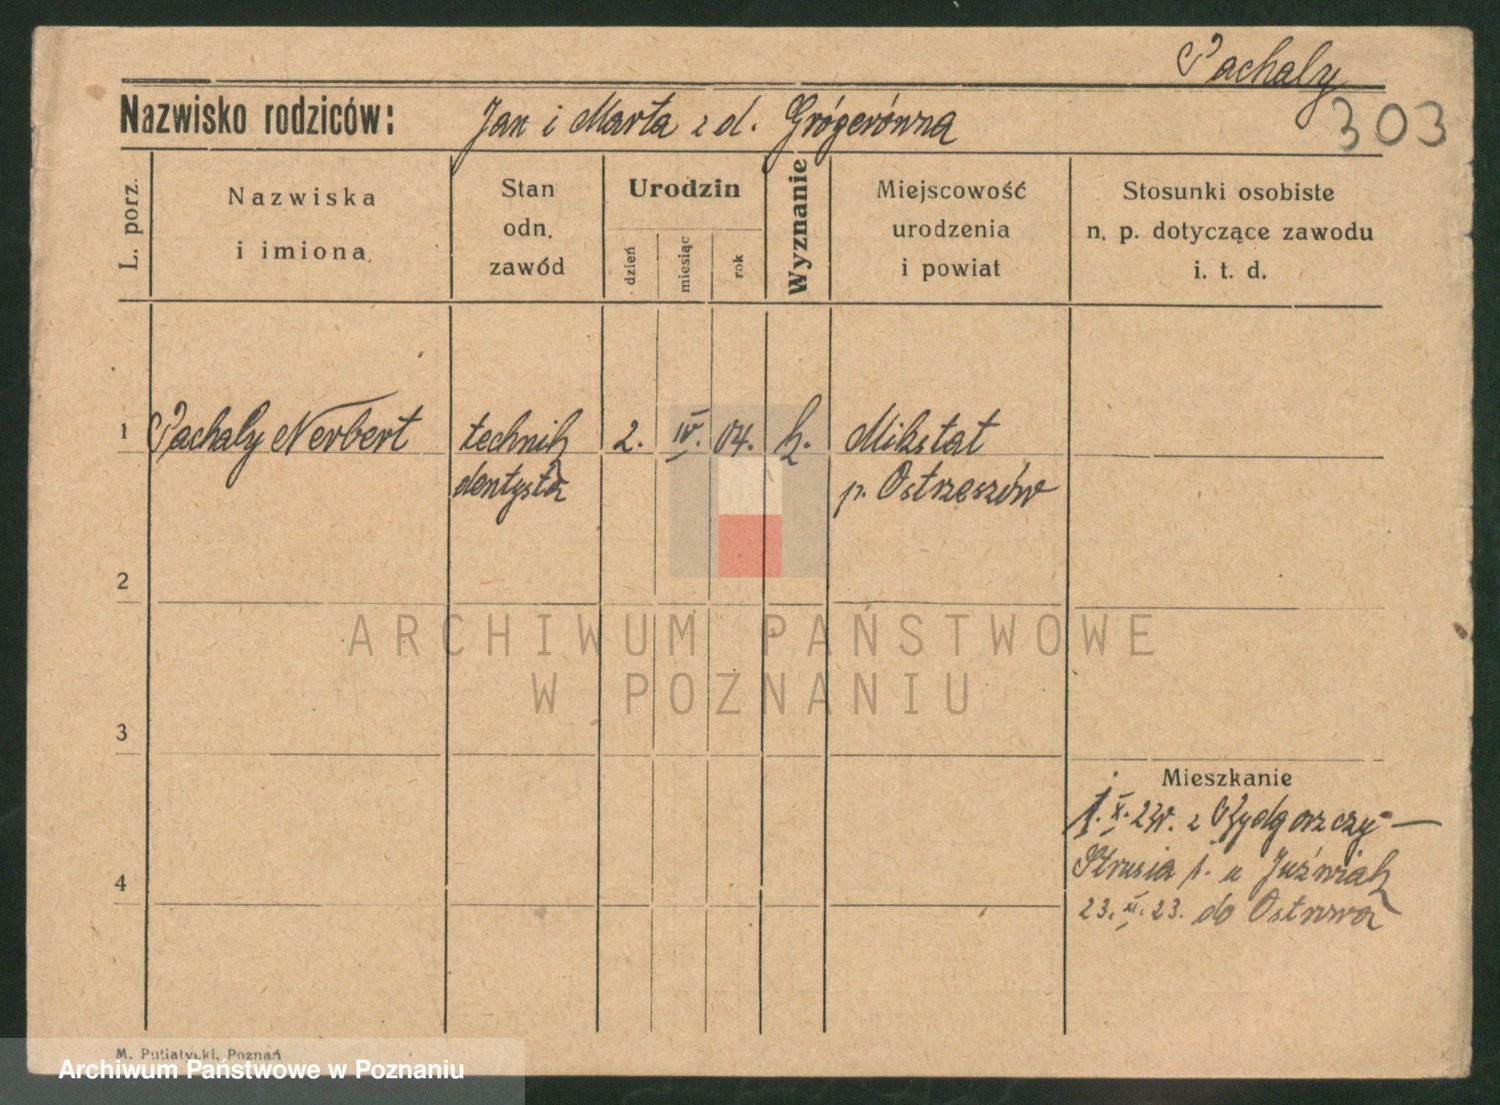 Pachaly
303
Nazwisko rodziców: Jan i Marta z d. Grögerówna
L. porz.
Nazwiska
i imiona
Stan
odn.
zawód
Urodzin
dzień
miesiąc
rok
Wyznanie
Miejscowość
urodzenia
i powiat
Stosunki osobiste
n. p. dotyczące zawodu
i. t. d.
1 Pachaly Norbert technik 2. IV. 04. k. Mikstat
dentysta p. Ostrzeszów
2
3
4
Mieszkanie
1. X. 23r. z Bydgoszczy
Strusia 1. u Juźwiak
23. 23. do Ostrowa
M. Putiatycki, Poznań
ARCHIWUM PAŃSTWOWE
W POZNANIU
Archiwum Państwowe w Poznaniu